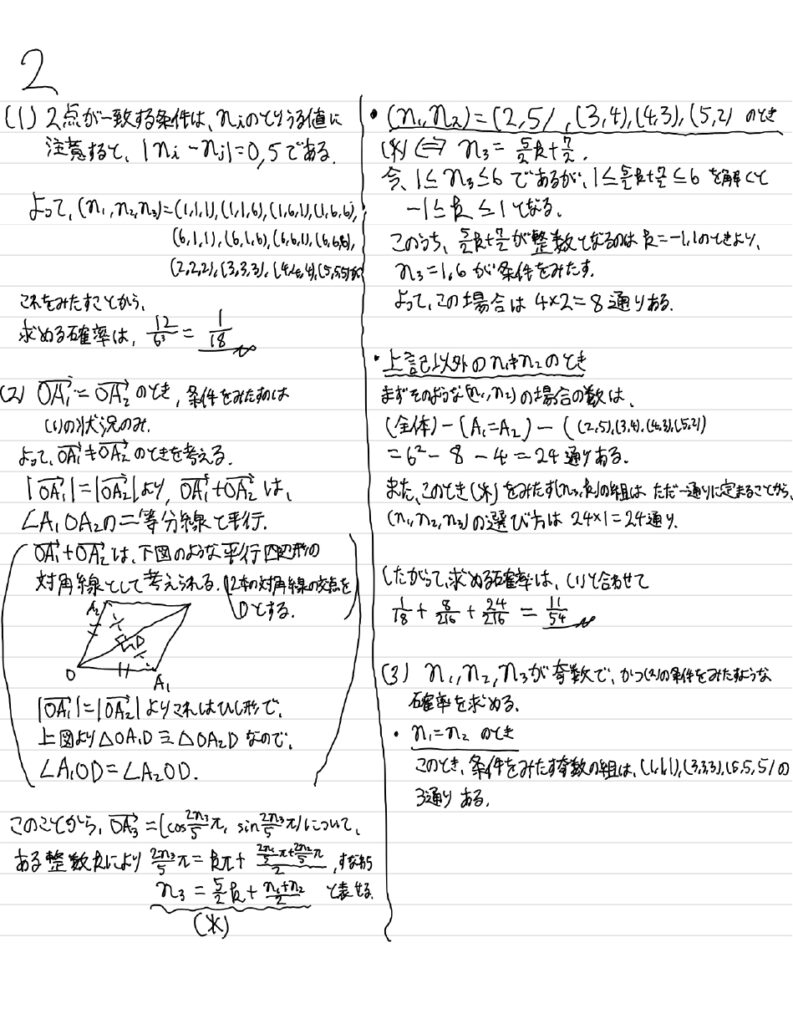 2
(1) 2点が一致する条件は、niのとりうる値に
注意すると、|ni − nj|=0,5である.
よって、(n1,n2,n3)=(1,1,1),(1,1,6),(1,6,1),(1,6,6),
(6,1,1),(6,1,6),(6,6,1),(6,6,6),
(2,2,2),(3,3,3),(4,4,4),(5,5,5)が
これをみたすことから、
求める確率は, 12/6³ = 1/18
(2) OA1 = OA2 のとき, 条件をみたすのは
(1)の状況のみ.
よって、OA1≠OA2 のときを考える.
|OA1|=|OA2|より, OA1+OA2 は、
∠A1OA2の二等分線と平行.
OA1+OA2 は、下図のような平行四辺形の
対角線として考えられる. (2本の対角線の交点を
Dとする.
A2
D
O
A1
|OA1|=|OA2| よりこれはひし形で、
上図より △OA1D ≡ △OA2D なので、
∠A1OD=∠A2OD.
このことから, OA3 =(cos 2n3/5 π, sin 2n3/5 π)について、
ある整数kにより 2n3/5 π= kπ+ (2n1/5 π+2n2/5 π)/2 , すなわち
n3 = 5/2 k + (n1+n2)/2 と表せる.
(*)
・(n1,n2)=(2,5),(3,4),(4,3),(5,2) のとき
(*) ⇔ n3 = 5/2 k+7/2.
今、1≤ n3≤6 であるが, 1≤5/2 k+7/2 ≤6 を解くと
−1≤ k ≤1となる.
このうち, 5/2 k+7/2 が整数となるのは k=−1,1のときより、
n3=1,6 が条件をみたす.
よって、この場合は 4×2=8 通りある.
・上記以外の n1≠n2 のとき
まずそのような(n1,n2) の場合の数は、
(全体)−(A1=A2)−((2,5),(3,4),(4,3),(5,2))
=6²−8−4=24通りある.
また、このとき(*)をみたす(n3,k)の組はただ一通りに定まることから、
(n1,n2,n3)の選び方は 24×1=24通り.
したがって、求める確率は、(1)と合わせて
1/18 + 8/216 + 24/216 = 11/54
(3) n1,n2,n3が奇数で、かつ(2)の条件をみたすような
確率を求める.
・n1=n2 のとき
このとき, 条件をみたす奇数の組は, (1,1,1),(3,3,3),(5,5,5)の
3通りある.